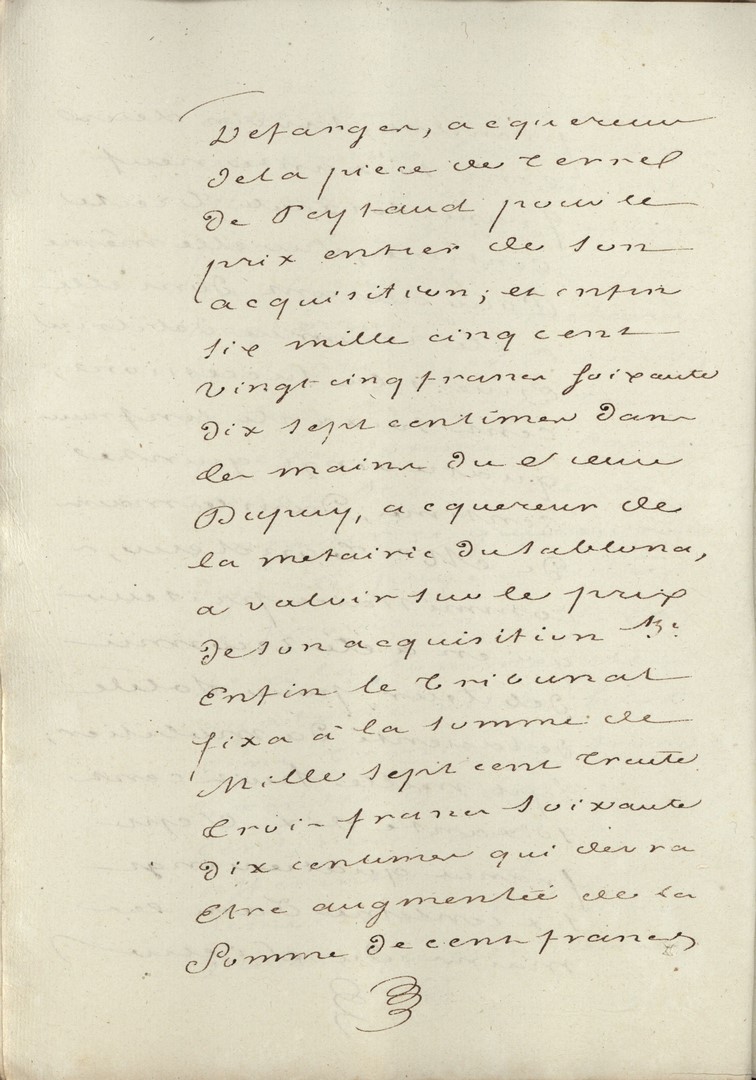 Defarges, acquereur
de la piece de terre
de Peytaud pour le
prix entier de son
acquisition; et enfin
six mille cinq cent
vingt cinq francs soixante
dix sept centimes dans
les mains du sieur
Dupuy, acquereur de
la metairie du sablona,
a valoir sur le prix
de son acquisition
Enfin le tribunal
fixa à la somme de
Mille sept cent trente
trois francs soixante
dix centimes qui devra
Etre augmentée de la
Somme de cent francs